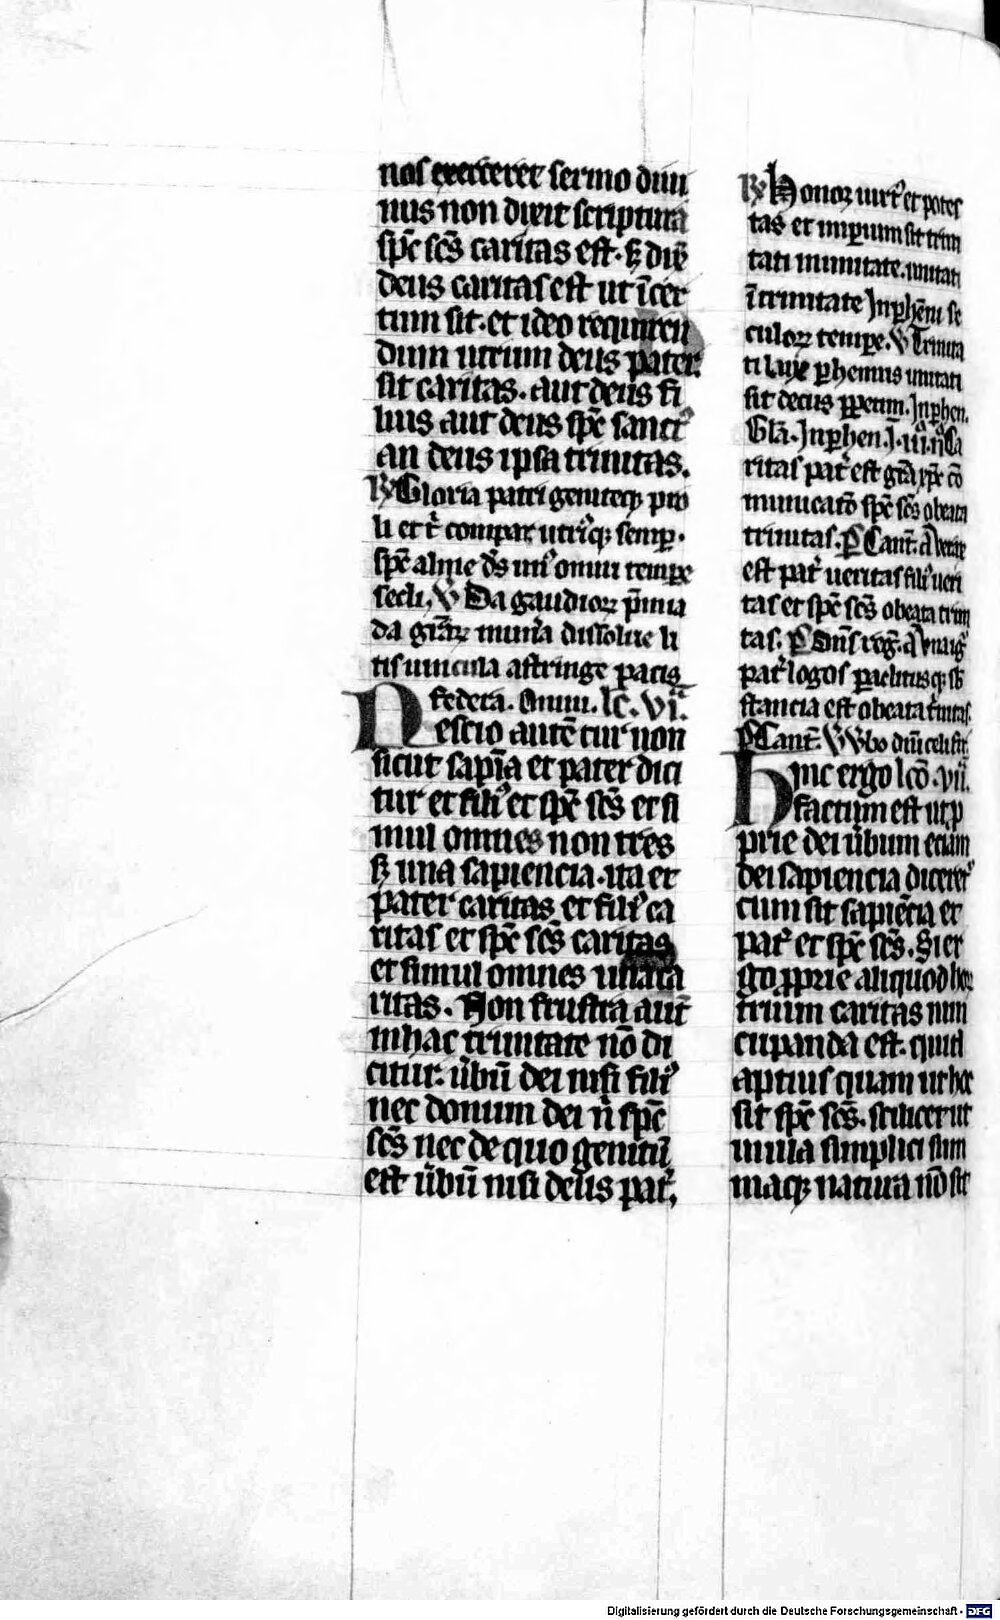 nos exerceret sermo diui
nus non dixit scriptura
spc̄ sc̄s caritas est. sꝫ dix̄
deus caritas est ut īcer
tum sit. et ideo requiren
dum utrum deus pater
sit caritas. aut deus fi
lius aut deus spc̄ sanctꝰ
an deus ipsa trinitas.
℟ Gloria patri geniteqꝫ pro
li et t̄ compar utriꝰqꝫ semꝑ.
spc̄ alme dꝰs unꝰ omni tempe
secli. ℣ Da gaudioꝝ p̄mia
da gr̄aꝝ munera dissolue li
tis uincula astringe pacis
federa. Omni. lc̄. vi.
Nescio autē cur non
sicut sapīa et pater dici
tur et filiꝰ et spc̄ sc̄s et si
mul omnes non tres
sꝫ una sapiencia. ita et
pater caritas et filiꝰ ca
ritas et spc̄ sc̄s caritas
et simul omnes una ca
ritas. Non frustra aut̄
in hac trinitate nō di
citur. ūbū dei nisi filiꝰ
nec donum dei n̄ spc̄
sc̄s nec de quo genitū
est ūbū nisi deus pat̄.
℟ Honoꝝ uirtꝰ et potes
tas et imꝑium sit trini
tati in unitate. unitati
ī trinitate Inꝑhēni se
culoꝝ tempe. ℣ Trinita
ti lux ꝑhennis unitati
sit decus ꝑpetim. Inꝑhen.
Gla. Inꝑhen. Ca
ritas pat̄ est gr̄a xpc̄ cō
municatō spc̄ sc̄s o beata
trinitas. Ps Cant̄. a Verax
est pat̄ ueritas filiꝰ ueri
tas et spc̄ sc̄s o beata trini
tas. Ps Dn̄s reḡ. a Vna igꝰ
pat̄ logos paclitusqꝫ sb
stancia est o beata t̄nitas.
Ps Cant̄. ℣ Vbo dn̄i celi fir.
Hinc ergo lcō. vii.
factum est ut ꝓ
prie dei ūbum eciam
dei sapiencia diceretꝰ
cum sit sapiēcia et
pat̄ et spc̄ sc̄s. Si er
go ꝓprie aliquod hoꝝ
trium caritas nun
cupanda est. quid
aptius quam ut hoc
sit spc̄ sc̄s. scilicet ut
in illa simplici sum
maqꝫ natura nō sit
Digitalisierung gefördert durch die Deutsche Forschungsgemeinschaft - DFG